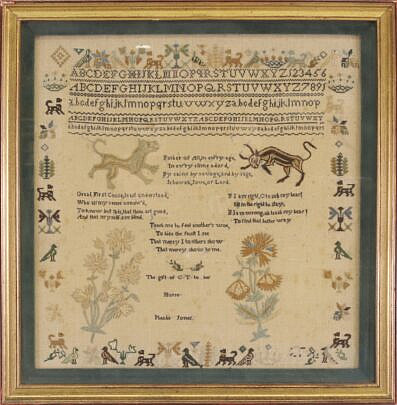 ABCDEFGHIJKLMNOPQRSTUVWXYZ123456
ABCDEFGHIJKLMNOPQRSTUVWXYZ7891
abcdefghijklmnopqrstuvwxyzabcdefghijklmnop
ABCDEFGHIJKLMNOPQRSTUVWXYZABCDEFGHIJKLMNOPQRSTUVWXY
Father of All, in every age,
In every clime ador'd,
By saint by savage, and by sage,
Jehovah, Jove, or Lord.
Great First Cause, least understood,
Who all my sense confin'd,
To know but this, that thou art good,
And that myself am blind,
If I am right, O teach my heart
Still in the right to stay;
If I am wrong, oh teach my heart
To find that better way
Teach me to feel another's woe,
To hide the fault I see
That mercy I to others show
That mercy show to me.
The gift of
to her